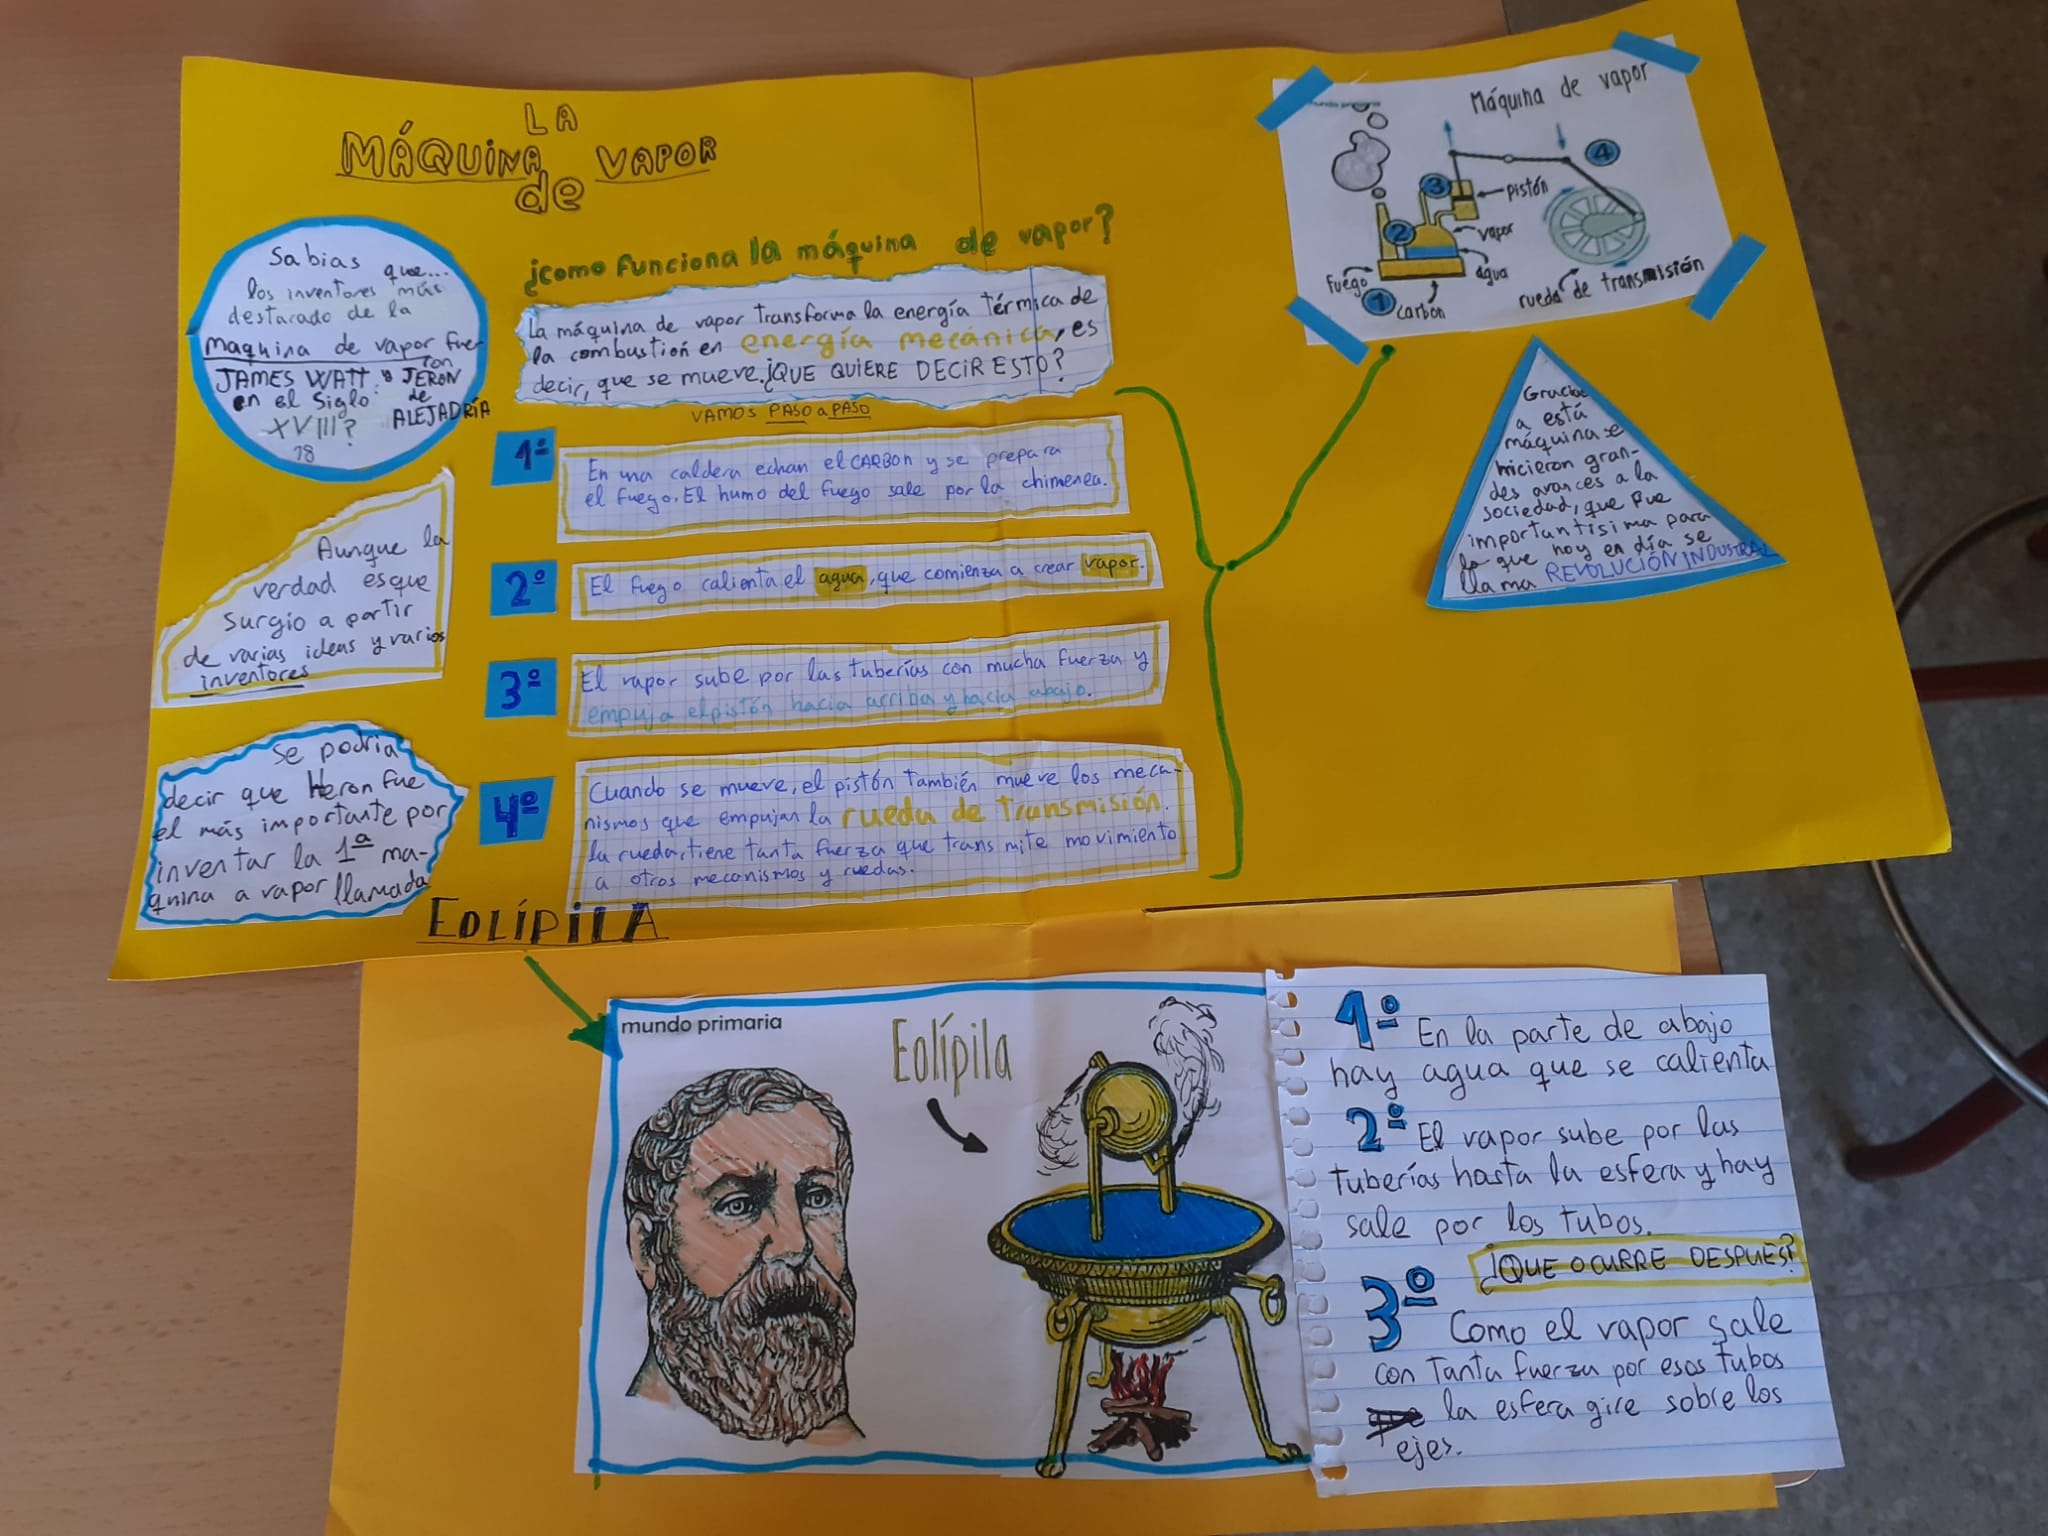 LA
MÁQUINA VAPOR
de
Sabias que...
los inventores más
destacado de la
maquina de vapor fue
ron
JAMES WATT. Y JERON
en el siglo de
ALEJADRÍA
XVIII?
18
Aunque la
verdad es que
surgio a partir
de varias ideas y varios
inventores
Se podria
decir que Heron fue
el más importante por
inventar la 1ª ma-
quina a vapor llamada
EOLÍPILA
¿como funciona la máquina de vapor?
La máquina de vapor transforma la energía térmica de
la combustión en energía mecánica, es
decir, que se mueve. ¿QUE QUIERE DECIR ESTO?
VAMOS PASO a PASO
1º
En una caldera echan el CARBON y se prepara
el fuego. El humo del fuego sale por la chimenea.
2º
El fuego calienta el agua, que comienza a crear vapor.
3º
El vapor sube por las tuberías con mucha fuerza y
empuja el pistón hacia arriba y hacia abajo.
4º
Cuando se mueve, el pistón también mueve los meca-
nismos que empujan la rueda de transmisión.
la rueda, tiene tanta fuerza que trans mite movimiento
a otros mecanismos y ruedas.
Máquina de vapor
4
3
pistón
2
vapor
agua
fuego
1
carbon
rueda de transmisión
Gracias
a está
máquina se
hicieron gran-
des avances a la
sociedad, que fue
importantisima para
lo que hoy en día se
llama REVOLUCIÓN INDUSTRIAL
mundo primaria
Eolípila
1º En la parte de abajo
hay agua que se calienta
2º El vapor sube por las
tuberías hasta la esfera y hay
sale por los tubos.
¿QUE OCURRE DESPUES?
3º Como el vapor sale
con tanta fuerza por esos tubos
la esfera gire sobre los
ejes.